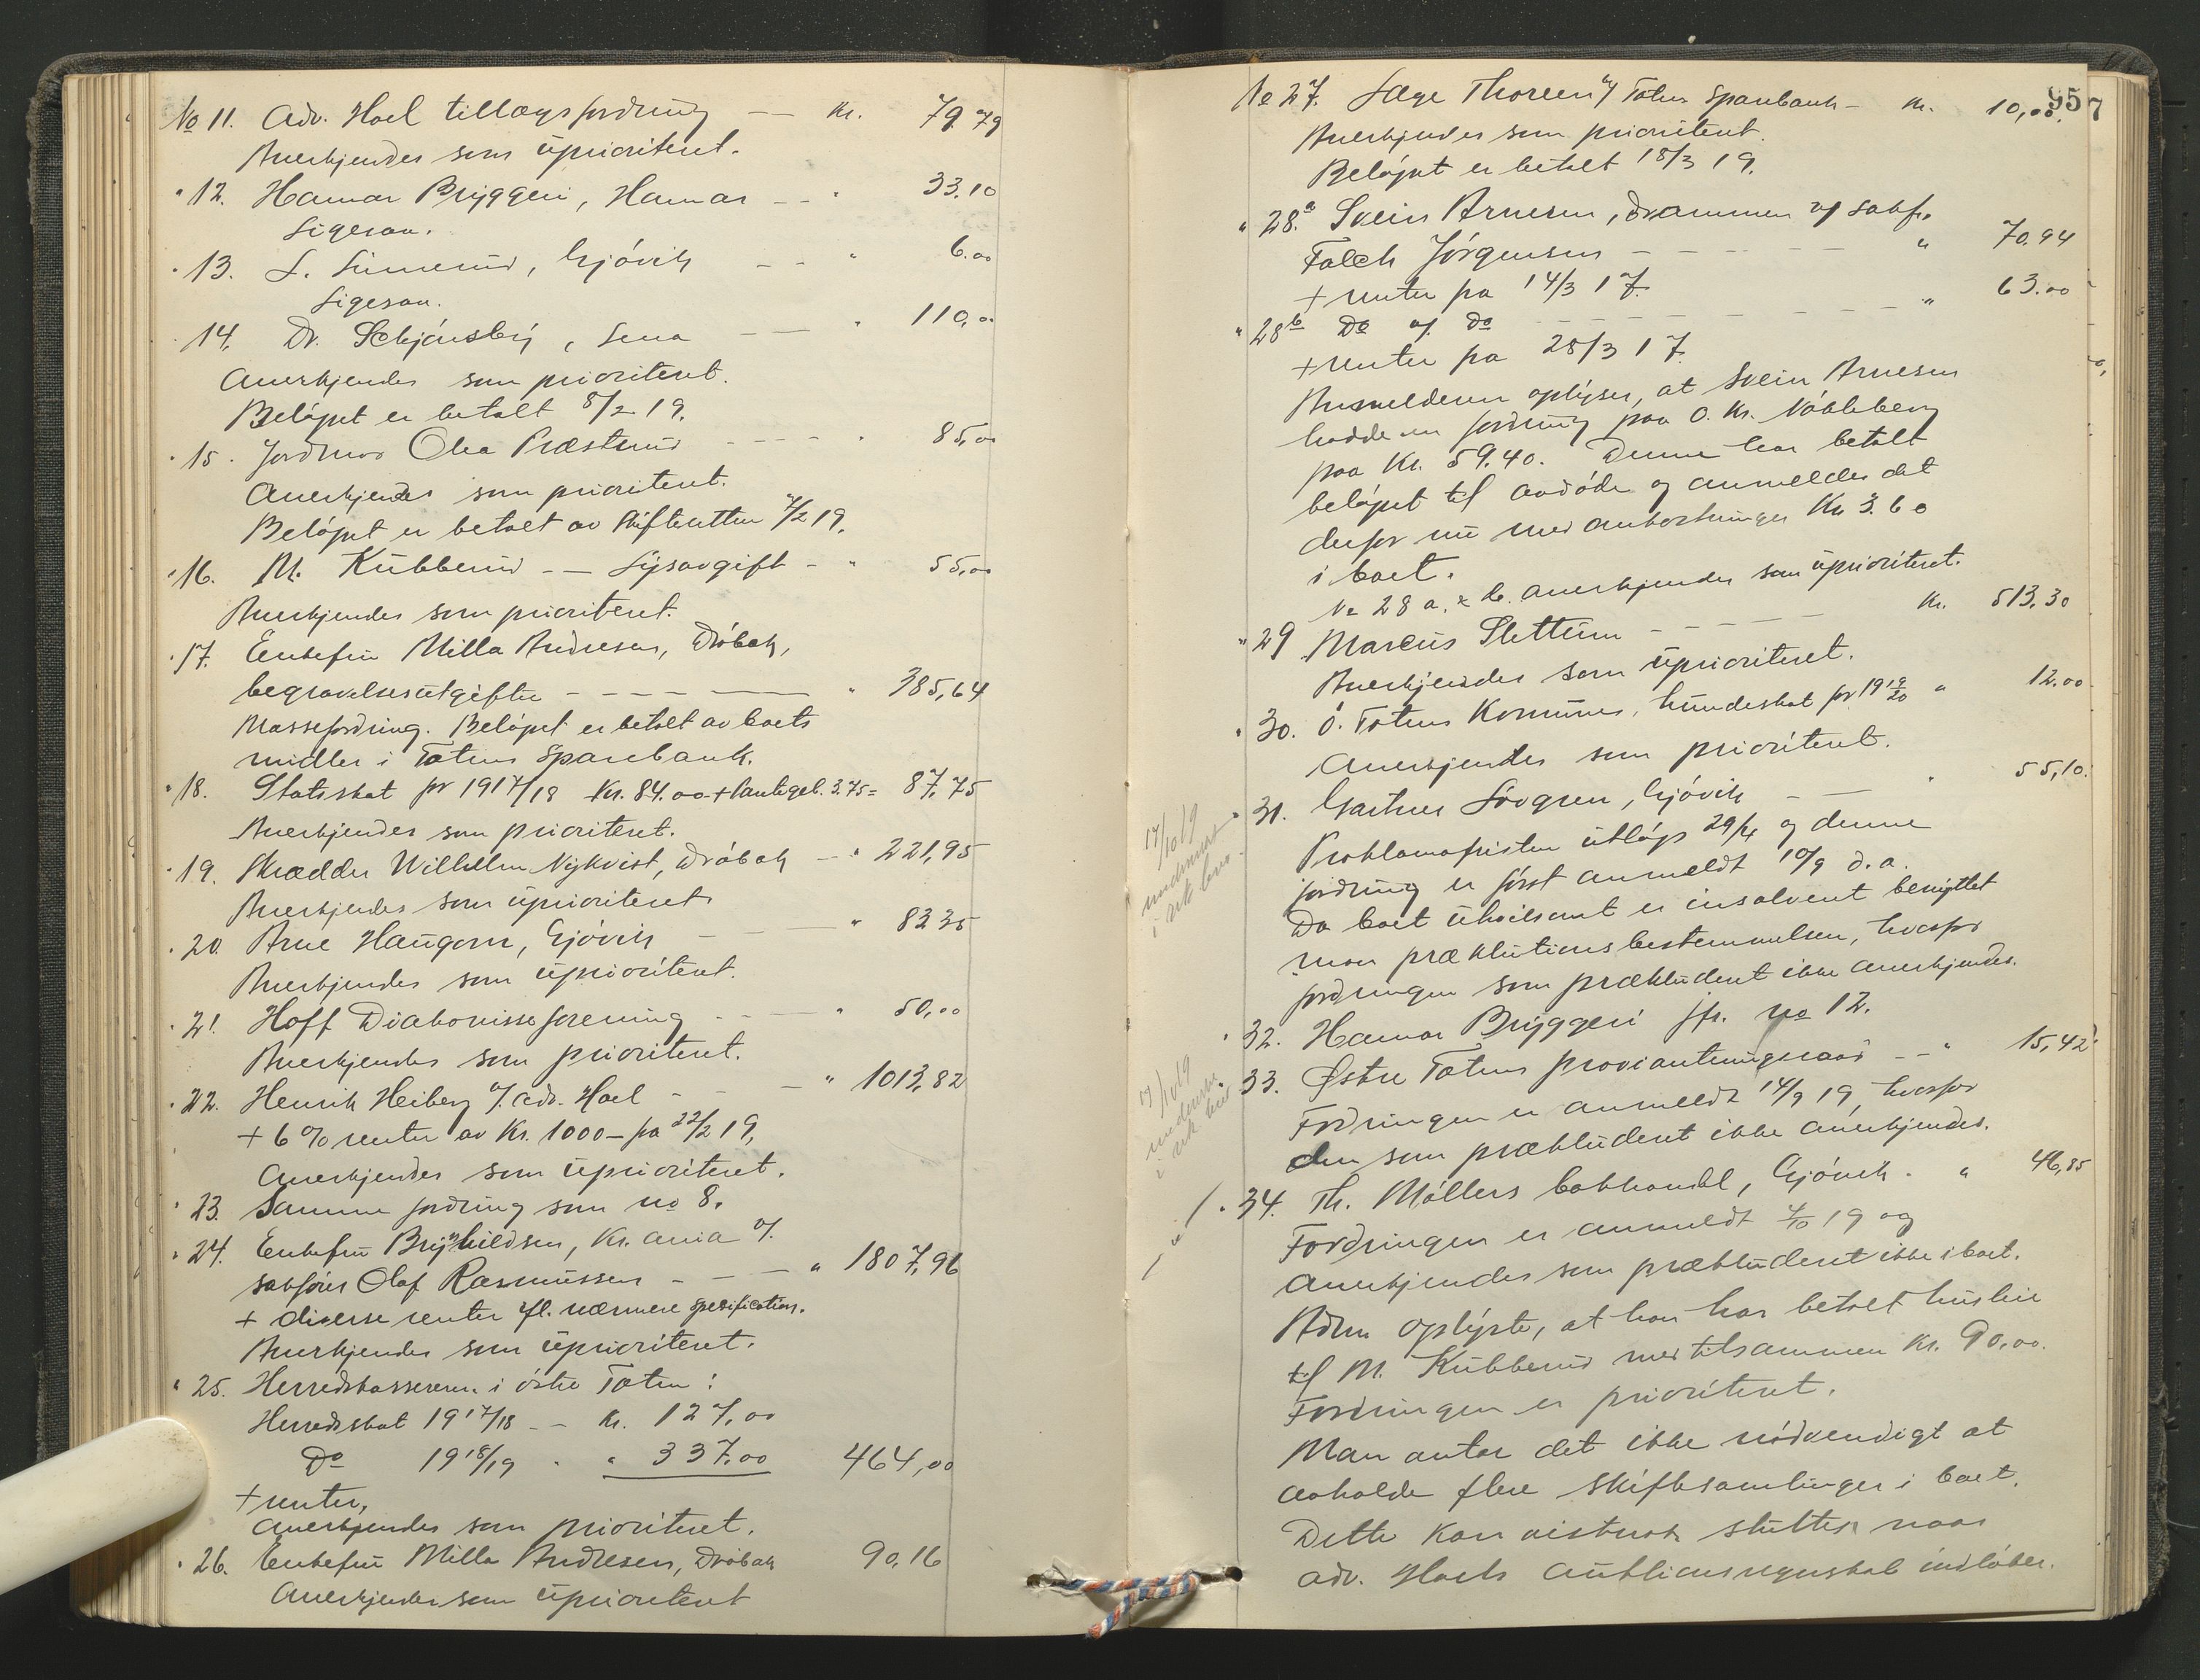 No 11. Adv. Hoel tillægsfordring — kr. 79.79
Anerkjendes som uprioritert.
" 12. Hamar Bryggeri, Hamar - - " 33.10
Ligesaa.
" 13. L. Linnerud, Gjövik - - " 6.00
Ligesaa.
" 14. Dr. Schjønsby, Lena — " 110,00
Anerkjendes som prioritert.
Belöpet er betalt 8/2 19.
" 15. Jordmor Olea Præstrud - - - - " 85,00
Anerkjendes som prioritert.
Belöpet er betalt av skifteretten 7/2 19.
" 16. M. Kubberud - — Lysavgift - " 55,00
Anerkjendes som prioritert.
" 17. Enkefru Milla Andresen, Dröbak,
begravelsesutgifter - - - - — " 385,64
Massefordring. Belöpet er betalt av boets
midler i Totens Sparebank.
" 18. Statsskat for 1917/18 Kr. 84.00 + pantegeb. 3.75 = 87,75
Anerkjendes som prioritert.
" 19. Skrædder Wilhelm Nykvist, Dröbak - " 221,95
Anerkjendes som uprioritert.
" 20. Arne Haugom, Gjövik - — " 82 35
Anerkjendes som uprioritert.
" 21. Hoff Diakonisseforening - - — " 50,00
Anerkjendes som prioritert.
" 22. Henrik Heiberg v/ adv. Hoel - - — " 1013,82
+ 6 % renter av Kr. 1000 - fra 22/2 19,
Anerkjendes som uprioritert.
" 23. Samme fordring som no 8.
" 24. Enkefru Brynhildsen, Kr.ania v/
sakförer Olaf Rasmussen - - — " 1807,96
+ diverse renter ifl. nærmere spesification.
Anerkjendes som uprioritert.
" 25. Herredskassereren i östre Toten:
Herredsskat 1917/18 - - Kr. 127,00
Do 1918/19 - " 337,00 464,00
+ renter,
Anerkjendes som prioritert.
" 26. Enkefru Milla Andresen, Dröbak 90,16
Anerkjendes som uprioritert
957
No 27. Læge Thoreen v/ Totens Sparebank - kr. 10,00.
Anerkjendes som prioritert.
Belöpet er betalt 18/3 19.
" 28.a Svein Arnesen, Drammen v/ sakf.
Falch Jörgensen - - - - - " 70.94
+ renter fra 14/3 17.
" 28b Do v/ Do - - - - - " 63.00
+ renter fra 28/3 17.
Anmelderen oplyser, at Svein Arnesen
hadde en fordring paa O. Kr. Nökleberg
paa Kr. 59.40. Denne har betalt
belöpet til avdöde og anmeldes det
derfor nu med omkostninger Kr 3.60
i boet.
No 28 a. & b. anerkjendes som uprioritert.
" 29 Marcus Slettum - - - - — Kr. 513,30
Anerkjendes som uprioritert.
" 30. Ö. Totens Kommune, hundeskat for 1919/20 " 12.00
Anerkjendes som prioritert.
" 31. Gartner Lövgren, Gjövik - — " 55,10.
Proklamafristen utlöp 29/4 og denne
fordring er först anmeldt 10/9 d.a.
Da boet utvilsomt er insolvent benyttet
man præklutionsbestemmelsen, hvorfor
fordringen som prækludert ikke anerkjendes.
17/10 19 underrettet i rek. brev.
" 32. Hamar Bryggeri jfr. no 12.
33. Østre Totens proviantningsraad - - " 15,42
Fordringen er anmeldt 14/9 19, hvorfor
den som prækludert ikke anerkjendes.
17/10 19 underrettet i rek. brev
" 34. Th. Möllers bokhandel, Gjövik - " 46,85
Fordringen er anmeldt 4/10 19 og
anerkjendes som prækludert ikke i boet.
Adm oplyste, at han har betalt husleie
til M. Kubberud med tilsammen Kr. 90.00.
Fordringen er prioritert.
Man antar det ikke nödvendigt at
avholde flere skiftesamlinger i boet.
Dette kan sluttes naar
adv. Hoels auktionsregnskab indlöber.